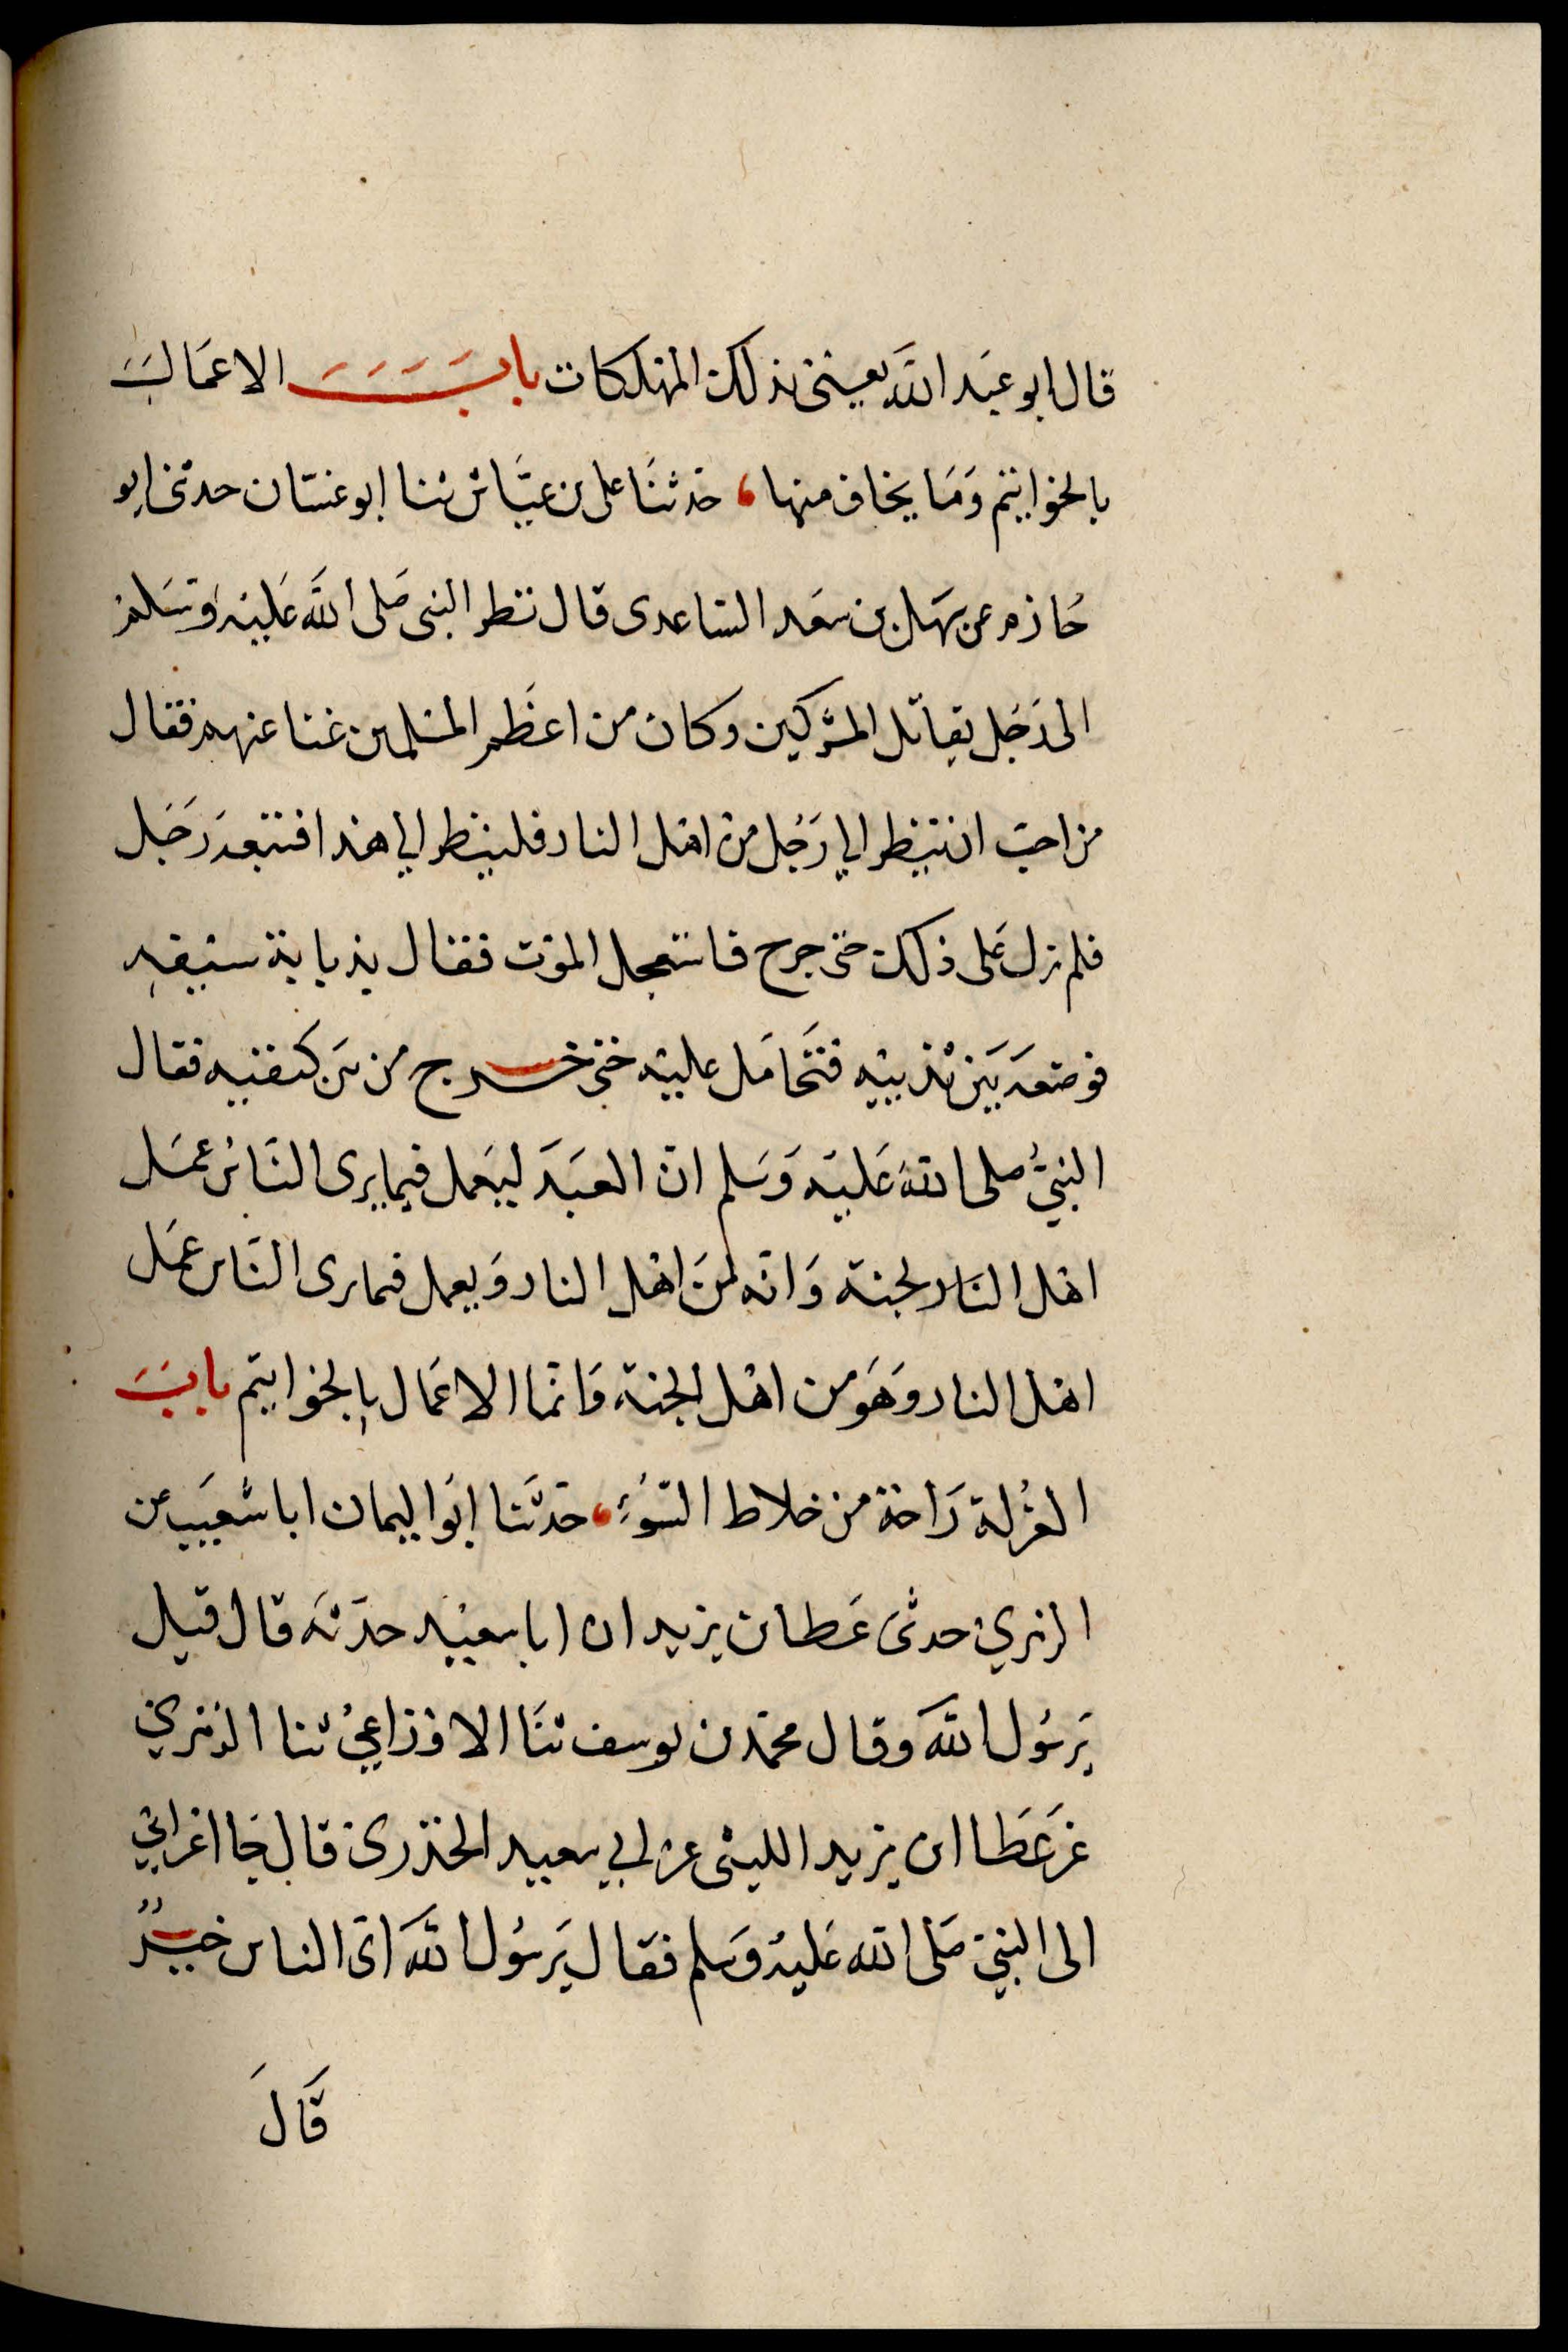 قال ابو عبد الله يعنى بذلك المهلكات باب الاعمال
بالخواتيم وما يخاف منها، حدثنا على بن عياش ثنا ابو غسان حدثنى ابو
حازم عن سهل بن سعد الساعدى قال نظر النبى صلى الله عليه وسلم
الى رجل يقاتل المشركين وكان من اعظم المسلمين غنا عنهم فقال
من احب ان ينظر الى رجل من اهل النار فلينظر الى هذا فتبعه رجل
فلم يزل على ذلك حتى جرح فاستعجل الموت فقال بذبابة سيفه
فوضعه بين ثدييه فتحامل عليه حتى خرج من بين كتفيه فقال
النبىُّ صلى الله عليه وسلم ان العبد ليعمل فيما يرى الناس عمل
اهل النار لجنة وانه لمن اهل النار ويعمل فيما يرى الناس عمل
اهل النار وهو من اهل الجنة وانما الاعمال بالخواتيم باب
العزلة راحة من خلاط السوء، حدثنا ابو اليمان ابا شعيب عن
الزهرى حدثى عطا بن يزيد ان ابا سعيد حدثه قال قيل
يرسول الله وقال محمد بن يوسف ثنا الاوزاعى ثنا الزهرى
عن عطا ابن يزيد الليثى عن ابى سعيد الخذرى قال جا اعرابى
الى النبى صلى الله عليه وسلم فقال يرسول الله اى الناس خيرٌ
قال